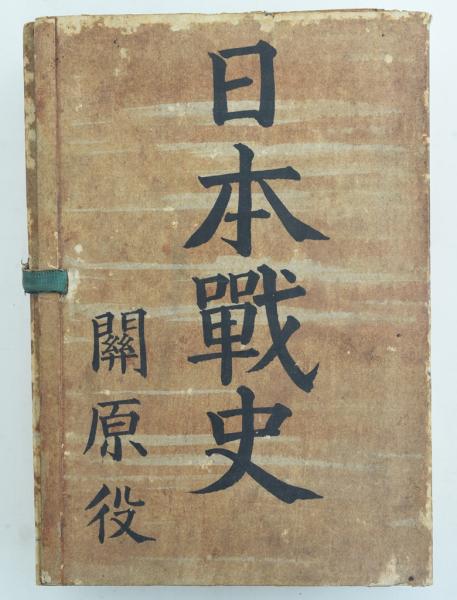 日本戰史
關原役